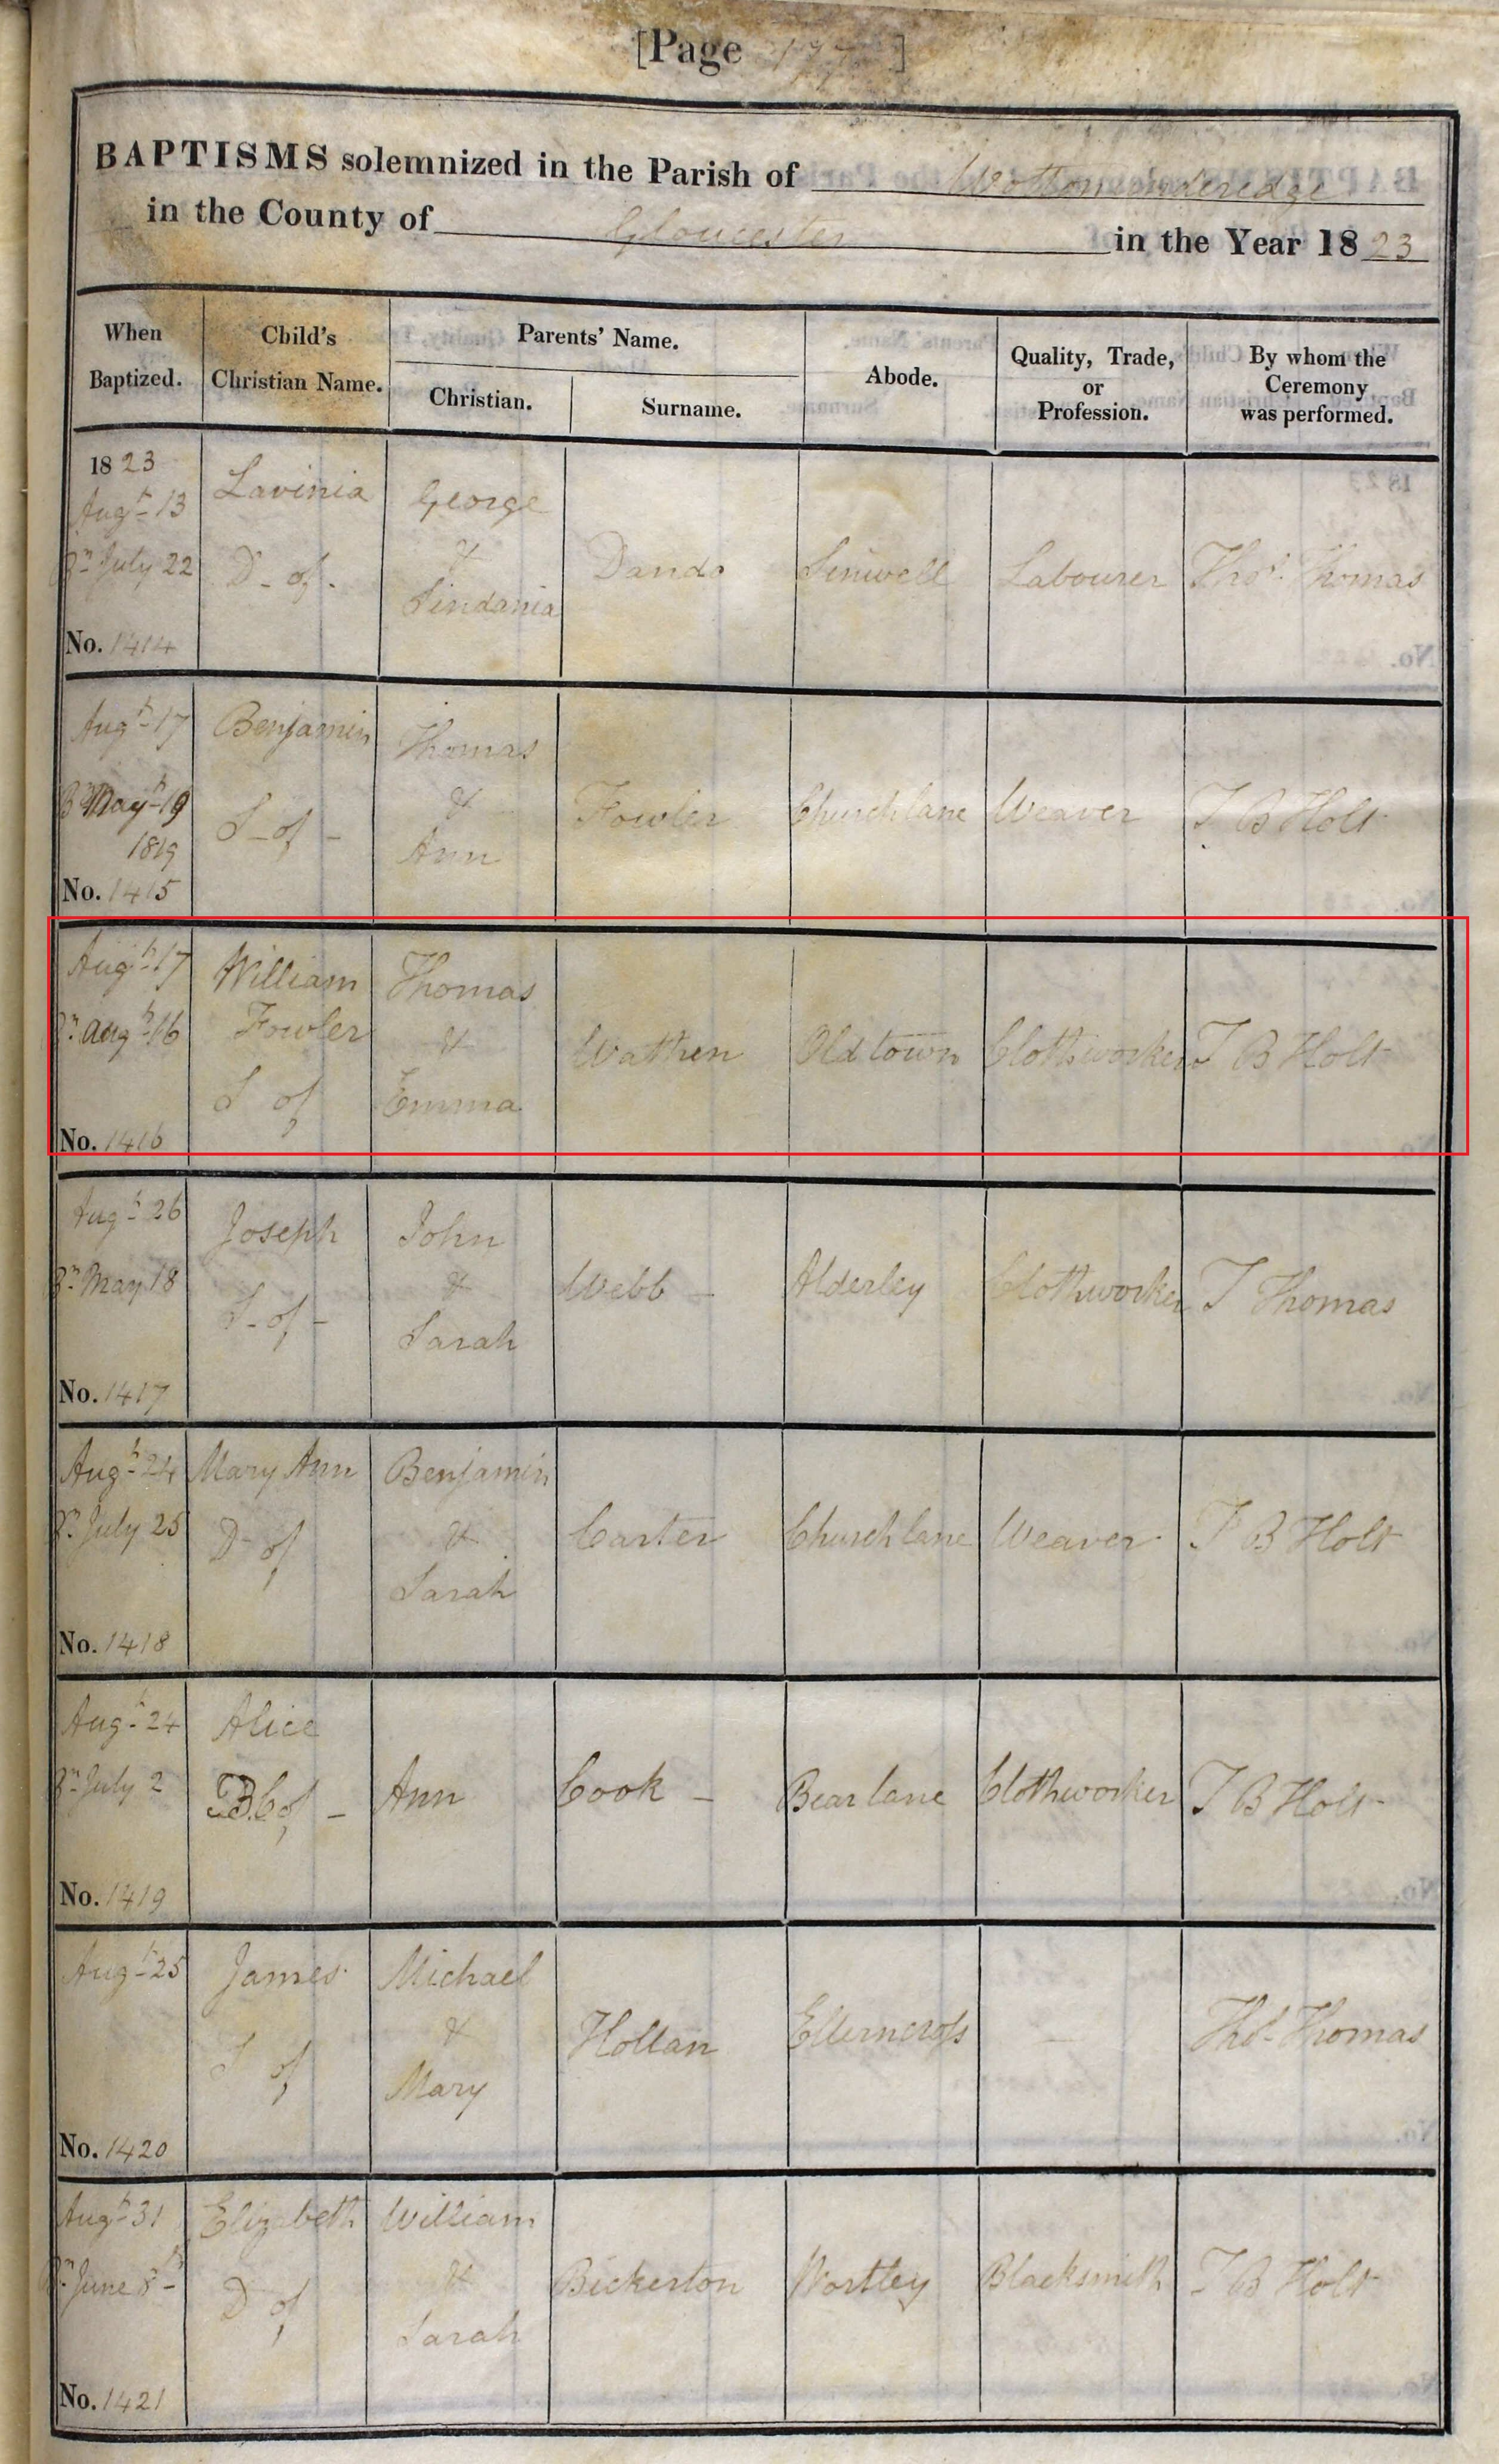 [Page ]
BAPTISMS solemnized in the Parish of Wottonunderedge
in the County of Gloucester in the Year 1823
When Baptized. Child's Christian Name. Parents' Name. Abode. Quality, Trade, or Profession. By whom the Ceremony was performed.
Christian. Surname.
1823
Augt 13
Bn July 22
No. 1414
Lavinia
D - of -
George
&
Sindania
Dando
Sinwell
Labourer
Thos. Thomas
Augt 17
Bn May 19
1819
No. 1415
Benjamin
S - of -
Thomas
&
Ann
Fowler
Churchlane
Weaver
T B Holt
Augt 17
Bn Augt 16
No. 1416
William
Fowler
S of
Thomas
&
Emma
Wathen
Oldtown
Clothworker
T B Holt
Augt 26
Bn May 18
No. 1417
Joseph
S - of -
John
&
Sarah
Webb -
Alderley
Clothworker
T Thomas
Augt 24
Bn July 25
No. 1418
Mary Ann
D of
Benjamin
&
Sarah
Carter
Churchlane
Weaver
T B Holt
Augt 24
Bn July 2
No. 1419
Alice
B.C of -
Ann
Cook -
Bear lane
Clothworker
T B Holt
Augt 25
No. 1420
James
S of
Michael
&
Mary
Hollan
Ellerncross
-
Thos Thomas
Augt 31
Bn June 8
No. 1421
Elizabeth
D of
William
&
Sarah
Bickerton
Wortley
Blacksmith
T B Holt